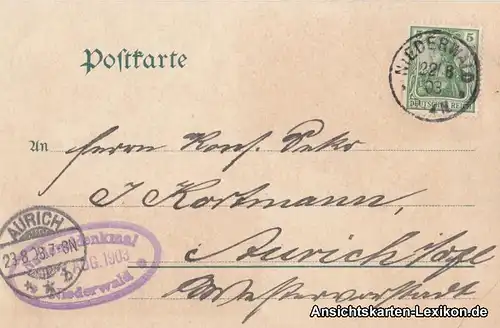 Postkarte
5
NIEDERWALD
22/8
03
DEUTSCHES REICH
An
Herrn
J. Kortmann,
AURICH
23.8.03.7-8N
Denkmal
AUG. 1903
Niederwald
i Aurich
Westervorstadt
Ansichtskarten-Lexikon.de